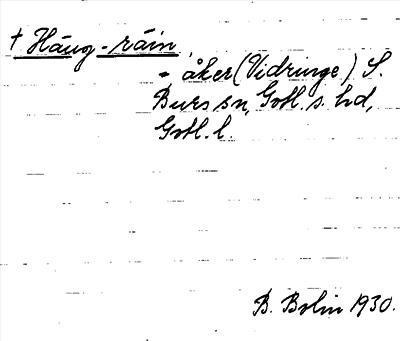 † Häug-räin,
- åker (Vidringe) S.
Burs sn, Gotl. s. hd,
Gotl. l.
B. Bolin 1930.